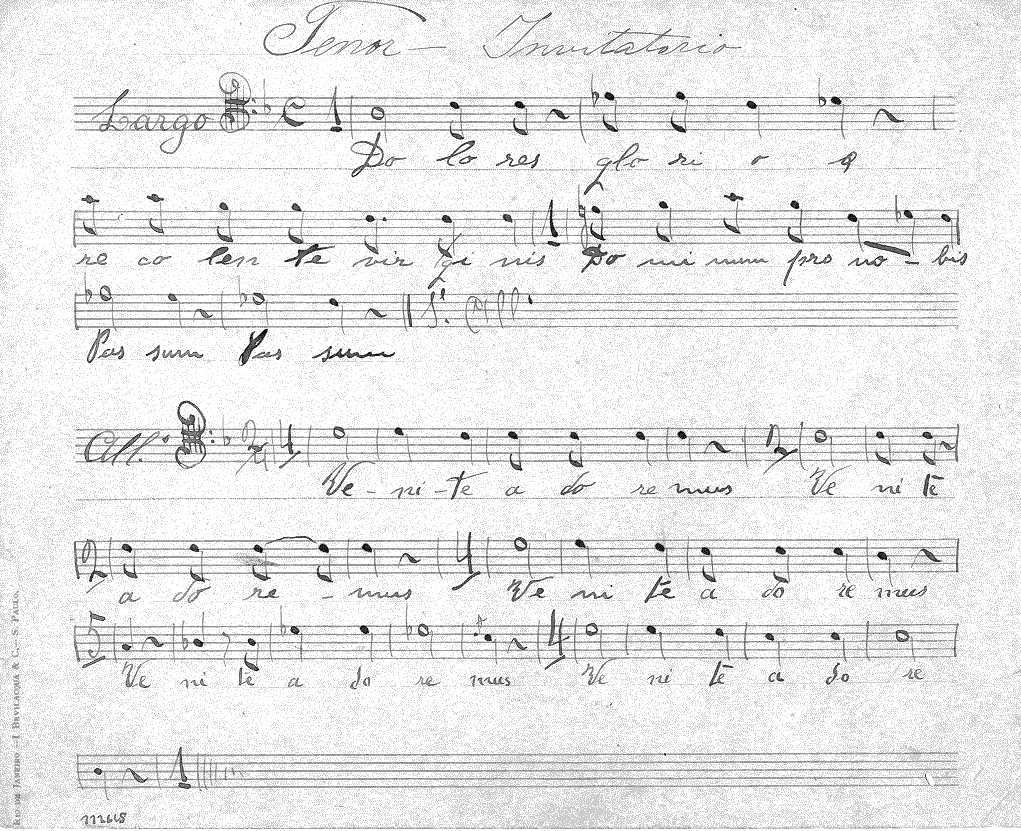 Tenor — Invitatorio
Largo C 1
Do lo res glo ri o s
re co len te vir gi nis Do mi num pro no - bis
1
Pas sum Pas sum
All.º 2 4 2
Ve - ni - te a do re mus Ve ni te
2 4
a do re - mus Ve ni te a do re mus
5 4
Ve ni te a do re mus Ve ni te a do re
1
mus
RIO DE JANEIRO — I. BEVILACQUA & C. — S. PAULO.